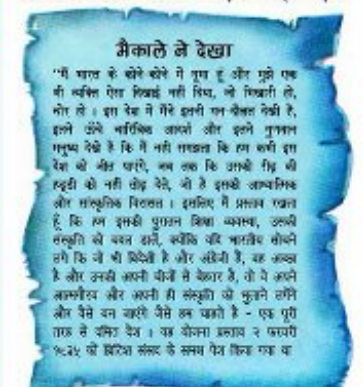 मैकाले ने देखा
"मैं भारत के कोने कोने में घूमा हूं और मुझे एक
भी व्यक्ति ऐसा दिखाई नहीं दिया, जो भिखारी हो,
चोर हो । इस देश में मैंने इतनी धन दौलत देखी है,
इतने ऊँचे चारित्रिक आदर्श और इतने गुणवान
मनुष्य देखे है कि मैं नही समझता कि हम कभी इस
देश को जीत पाएंगे, जब तक कि उसकी रीढ़ की
हड्डी को नही तोड़ देते, जो है इसकी आध्यात्मिक
और सांस्कृतिक विरासत । इसलिए मैं प्रस्ताव रखता
हूँ कि हम इसकी पुरातन शिक्षा व्यवस्था, उसकी
संस्कृति को बदल डालें, क्योंकि यदि भारतीय सोचने
लगे कि जो भी विदेशी है और अंग्रेजी है, वह अच्छा
है और उनकी अपनी चीजों से बेहतर है, तो वे अपने
आत्मगौरव और अपनी ही संस्कृति को भुलाने लगेंगे
और वैसे बन जाएंगे जैसे हम चाहते है - एक पूरी
तरह से दमित देश । यह योजना प्रस्ताव २ फरवरी
१८३५ को ब्रिटिश संसद के समक्ष पेश किया गया था